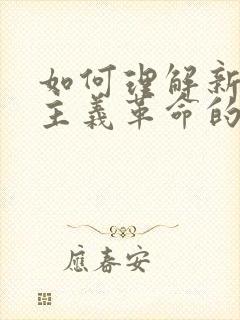 如何理解新
主義革命的
應春安